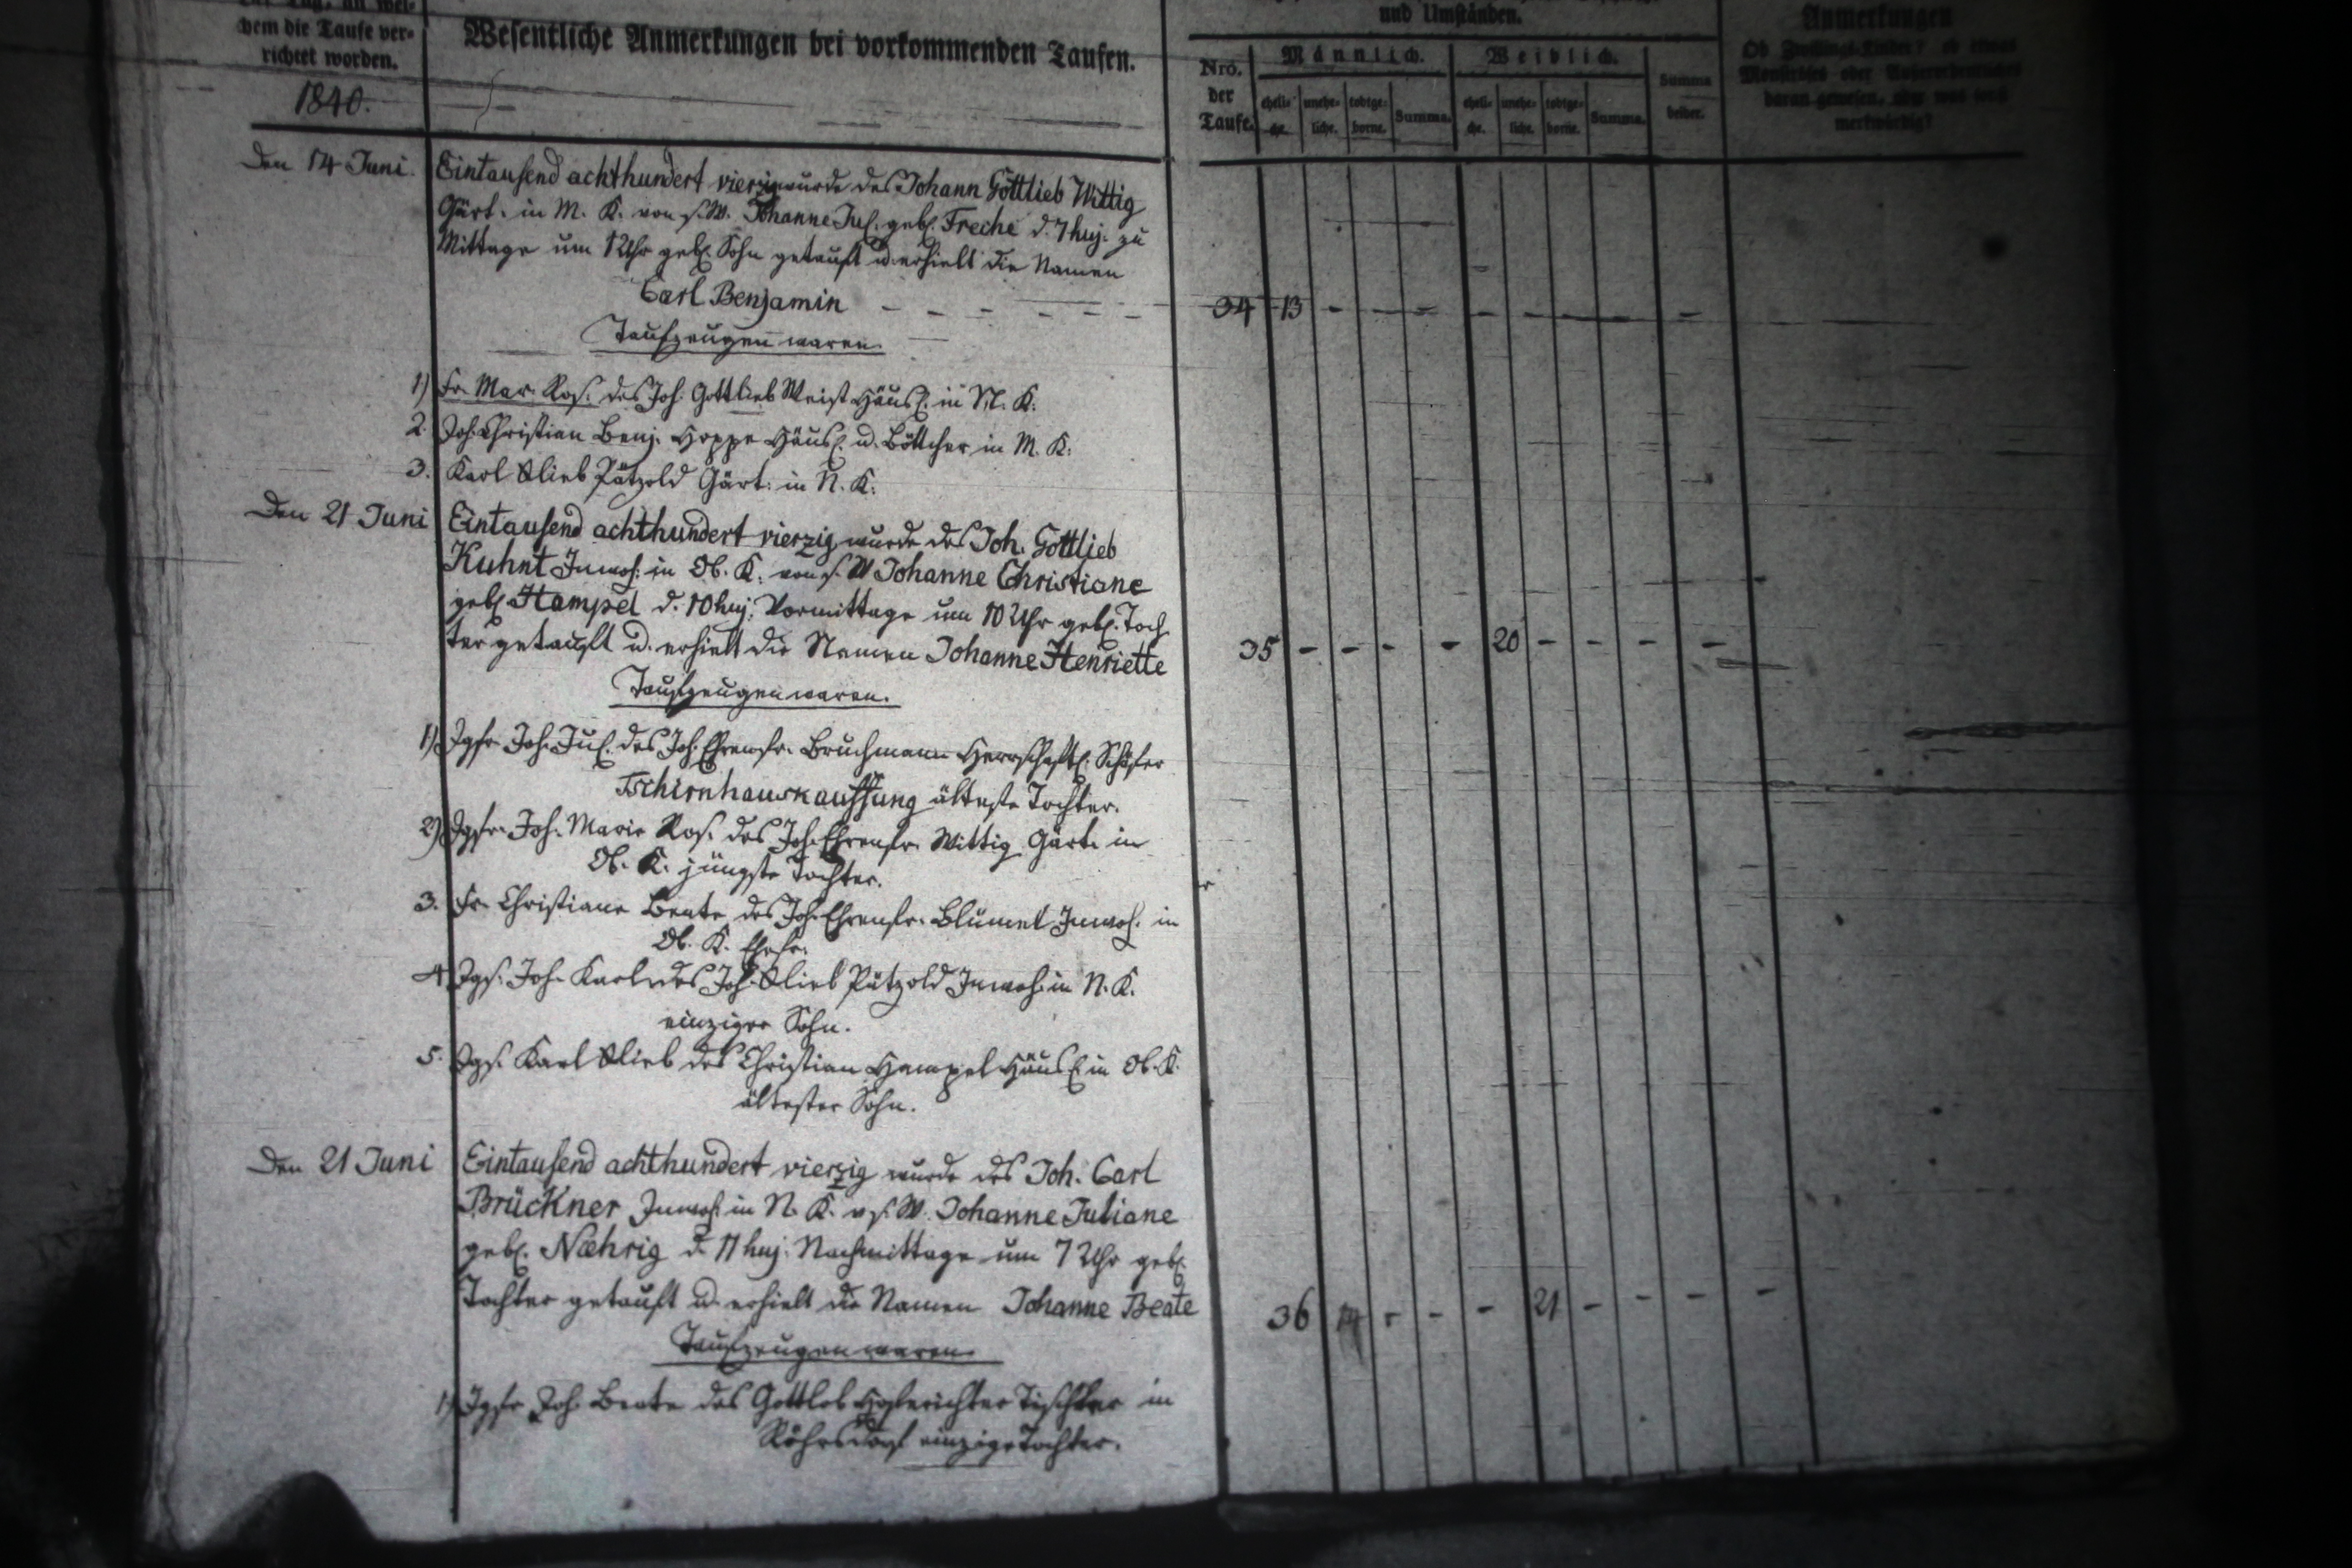 der Tag, an wel-
chem die Taufe ver-
richtet worden.
1840.
Wesentliche Anmerkungen bei vorkommenden Taufen.
und Umständen.
Nro.
der
Taufe.
Männlich.
eheli-
che.
unehe-
liche.
todtge-
borne.
Summa.
Weiblich.
eheli-
che.
unehe-
liche.
todtge-
borne.
Summa.
Summa
beider.
Anmerkungen
Ob Zwillings-Kinder? ob etwas
Monströses oder Außerordentliches
daran gewesen, oder was sonst
merkwürdig?
Den 14 Juni.
Eintausend achthundert vierzig wurde des Johann Gottlieb Wittig
Gärt. in M. K. von s. W. Johanne Jul. geb. Freche d. 7 huj. zu
Mittage um 1 Uhr geb. Sohn getauft u. erhielt die Namen
Carl Benjamin - - - - - -
34 13 - - - - - - - -
Taufzeugen waren.
1) Fr. Mar. Ros. des Joh. Gottlieb Weist Häusl. in M. K.
2. Joh. Christian Benj. Hoppe Häusl. u. Böttcher in M. K.
3. Karl Glieb Pätzold Gärt. in N. K.
Den 21 Juni
Eintausend achthundert vierzig wurde des Joh. Gottlieb
Kuhnt Inwoh. in Ob. K. von s. W Johanne Christiane
geb. Hampel d. 10 huj. Vormittage um 10 Uhr geb. Toch
ter getauft u. erhielt die Namen Johanne Henriette
35 - - - - 20 - - - -
Taufzeugen waren.
1) Jgfr. Joh. Jul. des Joh. Ehrenfr. Bruchmann Herrschaftl. Schäfer
Tschirnhauskauffung älteste Tochter.
2) Jgfr. Joh. Marie Ros. des Joh. Ehrenfr. Wittig Gärt. in
Ob. K. jüngste Tochter.
3. Fr. Christiane Beate des Joh. Ehrenfr. Blümel Inwoh. in
Ob. K. Ehefr.
4 Jgs. Joh. Karl des Joh. Glieb Pätzold Inwoh. in N. K.
einziger Sohn.
5. Jgs. Karl Glieb des Christian Hampel Häusl. in Ob. K.
ältester Sohn.
Den 21 Juni
Eintausend achthundert vierzig wurde des Joh. Carl
Brückner Inwoh. in N. K. v. s. W. Johanne Juliane
geb. Næhrig d. 11 huj. Nachmittage um 7 Uhr geb.
Tochter getauft u. erhielt die Namen Johanne Beate
36 - - - 21 - - - -
Taufzeugen waren.
1) Jgfr Joh. Beate des Gottlob Hofrichter Tischler in
Röhrsdorf einzige Tochter.